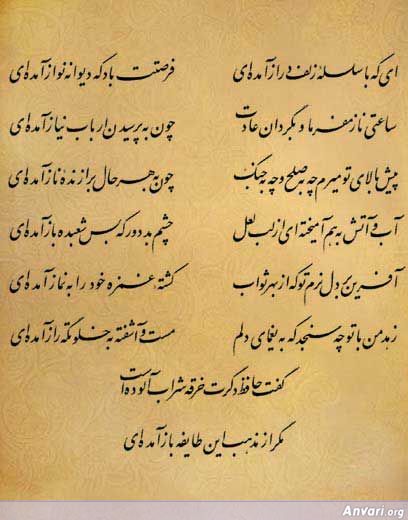 ای که با سلسلهٔ زلف دراز آمده‌ای فرصتت باد که دیوانه نواز آمده‌ای
ساعتی ناز مفرما و بگردان عادت چون به پرسیدن ارباب نیاز آمده‌ای
پیش بالای تو میرم چه به صلح و چه به جنگ چون به هر حال برازندهٔ ناز آمده‌ای
آب و آتش به هم آمیخته‌ای از لب لعل چشم بد دور که بس شعبده باز آمده‌ای
آفرین بر دل نرم تو که از بهر ثواب کشتهٔ غمزه خود را به نماز آمده‌ای
زهد من با تو چه سنجد که به یغمای دلم مست و آشفته به خلوتگه راز آمده‌ای
گفت حافظ دگرت خرقه شراب آلوده است
مگر از مذهب این طایفه باز آمده‌ای
Anvari.org